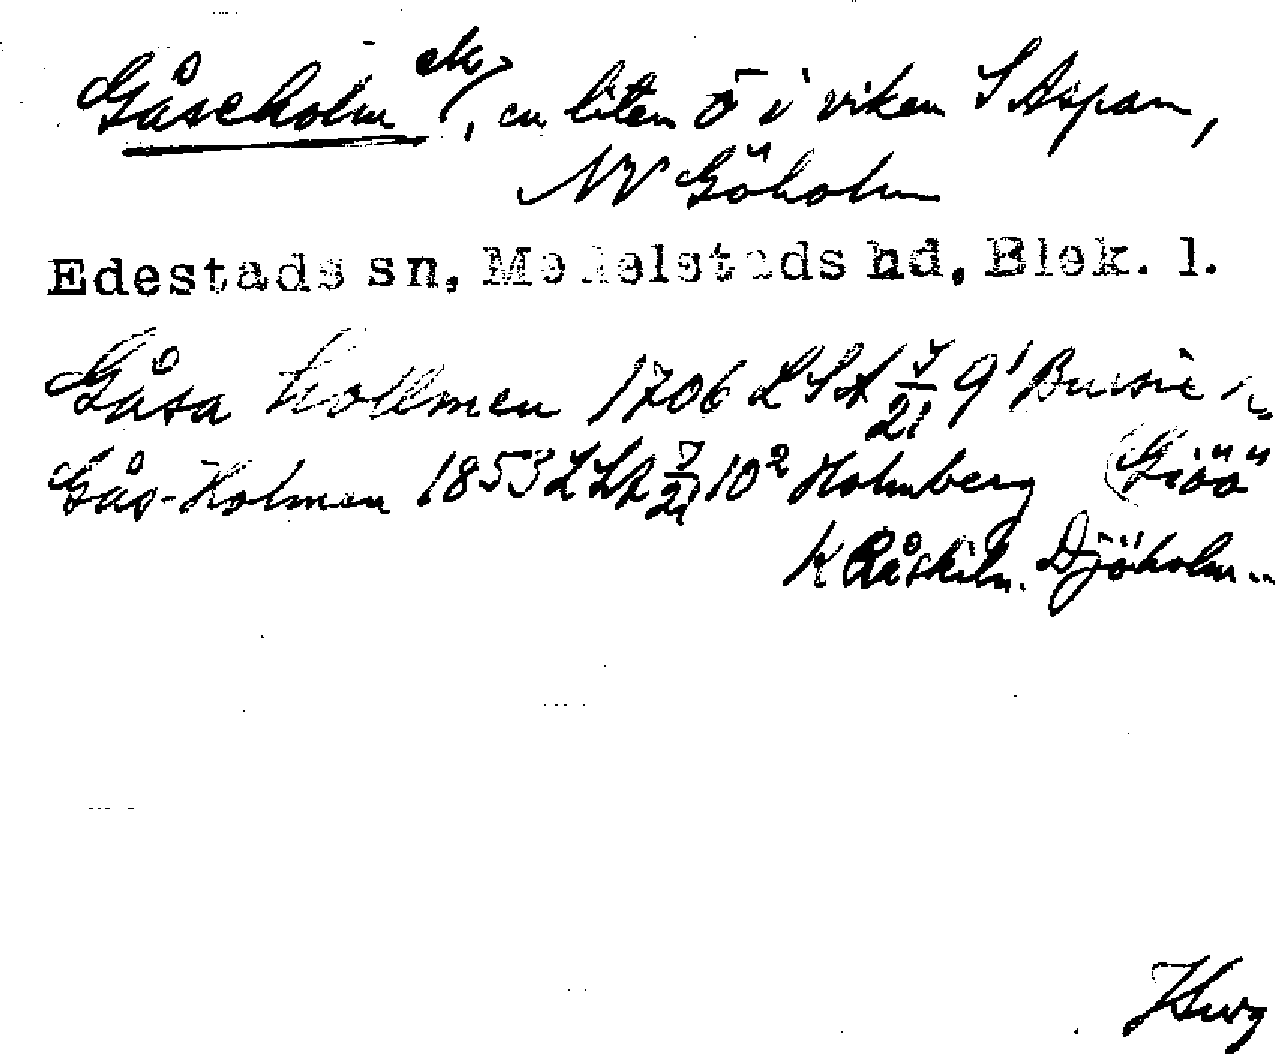 Gåseholm ek, en liten ö i viken S Aspan,
NV Göholm
Edestads sn, Medelstads hd, Blek. l.
Gåsa hollmen 1706 LSA 7/21 9¹
Gås-Holmen 1853 LSA 7/21 10² Holmberg (Giöö
K Råskiln. Djöholm